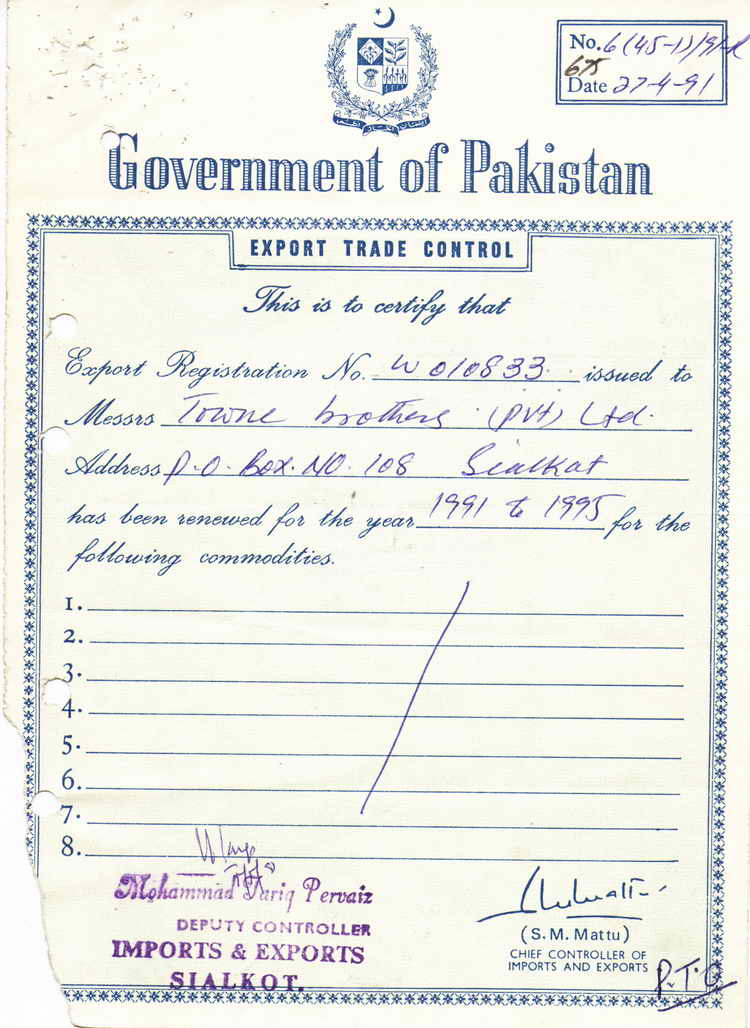 No. 6(45-1)/91-R
675
Date 27-4-91
Government of Pakistan
EXPORT TRADE CONTROL
This is to certify that
Export Registration No. W010833. issued to
Messrs Towne brothers (Pvt) Ltd.
Address P.O. Box. NO. 108 Sialkat
has been renewed for the year 1991 to 1995 for the
following commodities.
1.
2.
3.
4.
5.
6.
7.
8.
Mohammad Tariq Pervaiz
DEPUTY CONTROLLER
IMPORTS & EXPORTS
SIALKOT.
(S. M. Mattu)
CHIEF CONTROLLER OF
IMPORTS AND EXPORTS
P.T.O